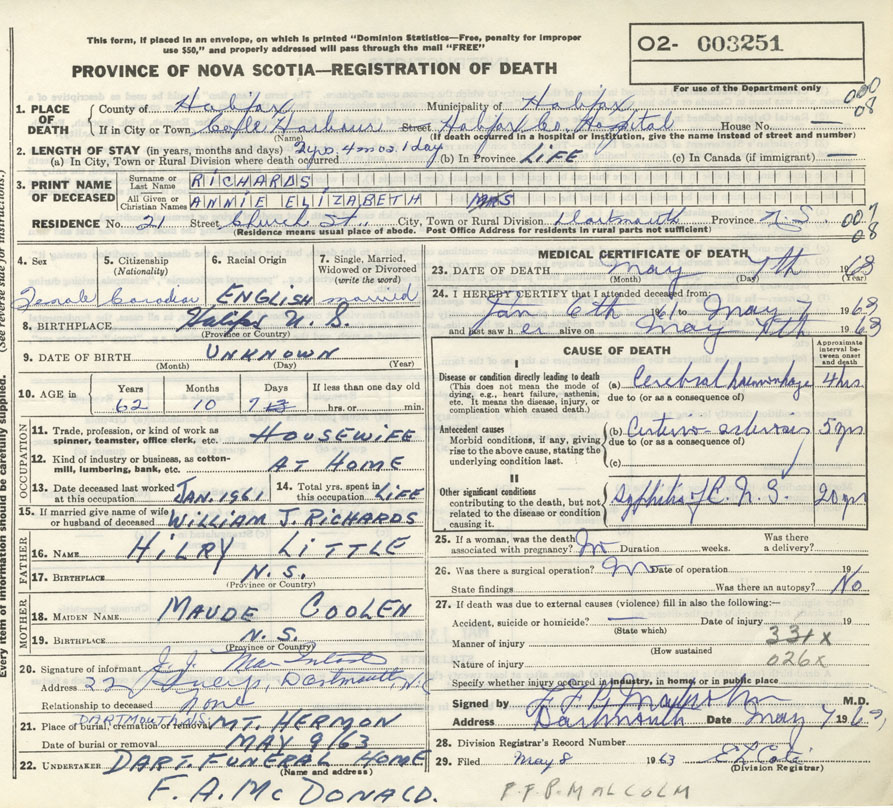 This form, if placed in an envelope, on which is printed "Dominion Statistics—Free, penalty for improper
use $50," and properly addressed will pass through the mail "FREE"
O2- 003251
PROVINCE OF NOVA SCOTIA—REGISTRATION OF DEATH
For use of the Department only
1. PLACE OF DEATH
County of Halifax Municipality of Halifax
000
08
If in City or Town Cole Harbour Street Halifax Co. Hospital House No. —
(Name) (If death occurred in a hospital institution, give the name instead of street and number)
2. LENGTH OF STAY (in years, months and days) 2 yrs. 4 mos. 1 day
(a) In City, Town or Rural Division where death occurred (b) In Province LIFE (c) In Canada (if immigrant) —
3. PRINT NAME OF DECEASED
Surname or Last Name RICHARDS
All Given or Christian Names ANNIE ELIZABETH MRS
RESIDENCE No. 21 Street Church St., City, Town or Rural Division Dartmouth Province N.S.
007
08
(Residence means usual place of abode. Post Office Address for residents in rural parts not sufficient)
4. Sex 5. Citizenship (Nationality) 6. Racial Origin 7. Single, Married, Widowed or Divorced (write the word)
Female Canadian ENGLISH married
8. BIRTHPLACE Halifax N.S.
(Province or Country)
9. DATE OF BIRTH UNKNOWN
(Month) (Day) (Year)
10. AGE in Years Months Days If less than one day old
62 10 hrs. or min.
OCCUPATION
11. Trade, profession, or kind of work as spinner, teamster, office clerk, etc. HOUSEWIFE
12. Kind of industry or business, as cotton-mill, lumbering, bank, etc. AT HOME
13. Date deceased last worked at this occupation JAN. 1961 14. Total yrs. spent in this occupation LIFE
15. If married give name of wife or husband of deceased WILLIAM J. RICHARDS
FATHER
16. NAME HILRY LITTLE
17. BIRTHPLACE N.S.
(Province or Country)
MOTHER
18. MAIDEN NAME MAUDE COOLEN
19. BIRTHPLACE N.S.
(Province or Country)
20. Signature of informant
Address 22 Dartmouth, N.S.
Relationship to deceased none
21. Place of burial, cremation or removal DARTMOUTH N.S. MT. HERMON
Date of burial or removal MAY 9/63
22. UNDERTAKER DART. FUNERAL HOME
(Name and address)
F. A. McDONALD.
MEDICAL CERTIFICATE OF DEATH
23. DATE OF DEATH May 7th 1963
(Month) (Day) (Year)
24. I HEREBY CERTIFY that I attended deceased from:
Jan 6th 1961 to May 7 1963
and last saw h er alive on May 7th 1963
CAUSE OF DEATH
Approximate interval between onset and death
I
Disease or condition directly leading to death
(This does not mean the mode of dying, e.g., heart failure, asthenia, etc. It means the disease, injury, or complication which caused death.)
(a) Cerebral haemorrhage 4 hrs.
due to (or as a consequence of)
Antecedent causes
Morbid conditions, if any, giving rise to the above cause, stating the underlying condition last.
(b) Arterio-sclerosis 5 yrs
due to (or as a consequence of)
(c)
II
Other significant conditions
contributing to the death, but not related to the disease or condition causing it.
Syphilis of C.N.S. 20 yrs
25. If a woman, was the death associated with pregnancy? No Duration weeks. Was there a delivery?
26. Was there a surgical operation? No Date of operation 19
State findings Was there an autopsy? No
27. If death was due to external causes (violence) fill in also the following:—
Accident, suicide or homicide? — Date of injury 19
(State which)
Manner of injury 331x
(How sustained)
Nature of injury 026x
Specify whether injury occurred in industry, in home or in public place
Signed by F F P Malcolm M.D.
Address Dartmouth Date May 7 1963
28. Division Registrar's Record Number
29. Filed May 8 1963
(Division Registrar)
F.F.P. MALCOLM
Every item of information should be carefully supplied. (See reverse side for instructions.)